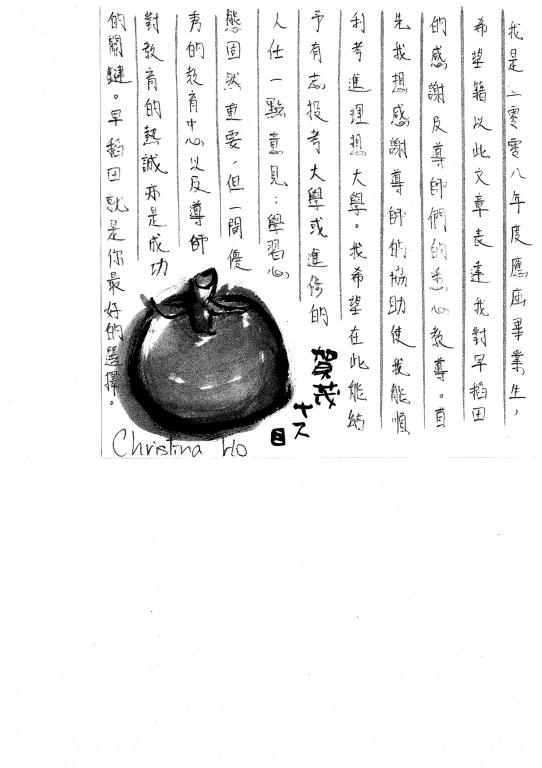 我是二零零八年度應屆畢業生，
希望籍以此文章表達我對早稻田
的感謝及尊師們的悉心教導。首
先我想感謝導師的協助使我能順
利考進理想大學。我希望在此能給
予有志投考大學或進修的
人仕一點意見：學習心
態固然重要，但一間優
秀的教育中心以及導師
對教育的熱誠亦是成功
的關鍵。早稻田就是你最好的選擇。
賀茂
Christina Ho